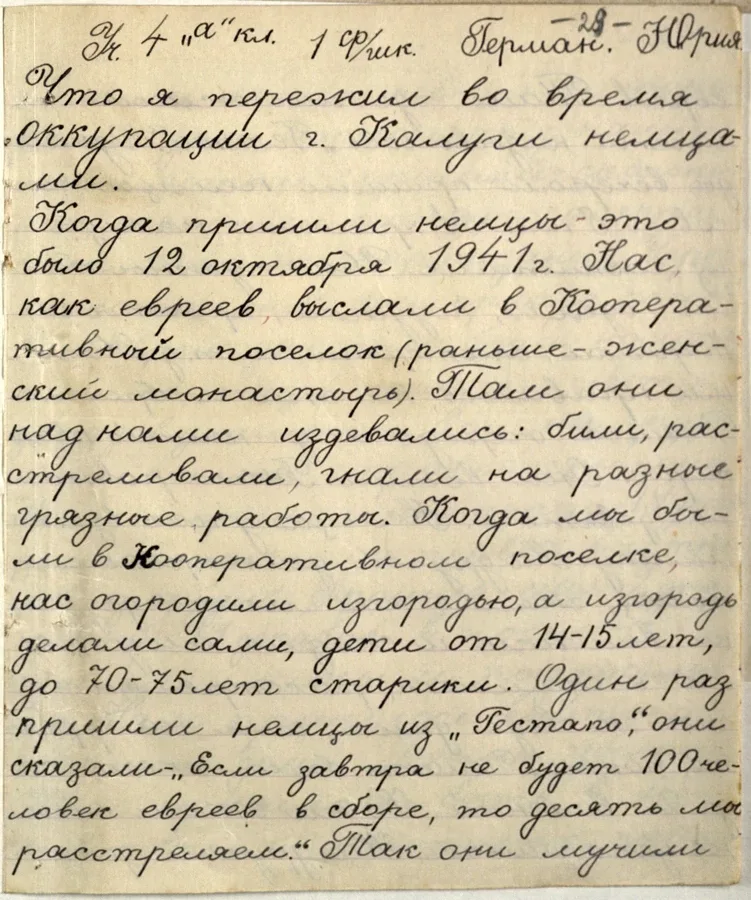 -28-
Уч. 4 „а“ кл. 1 ср/шк. Герман. Юрия.
Что я пережил во время
оккупации г. Калуги немца-
ми.
Когда пришли немцы - это
было 12 октября 1941 г. Нас,
как евреев, выслали в Коопера-
тивный поселок (раньше - жен-
ский монастырь). Там они
над нами издевались: били, рас-
стреливали, гнали на разные
грязные работы. Когда мы бы-
ли в Кооперативном поселке,
нас огородили изгородью, а изгородь
делали сами, дети от 14-15 лет,
до 70-75 лет старики. Один раз
пришли немцы из „Гестапо“, они
сказали - „Если завтра не будет 100 че-
ловек евреев в сборе, то десять мы
расстреляем.“ Так они мучили